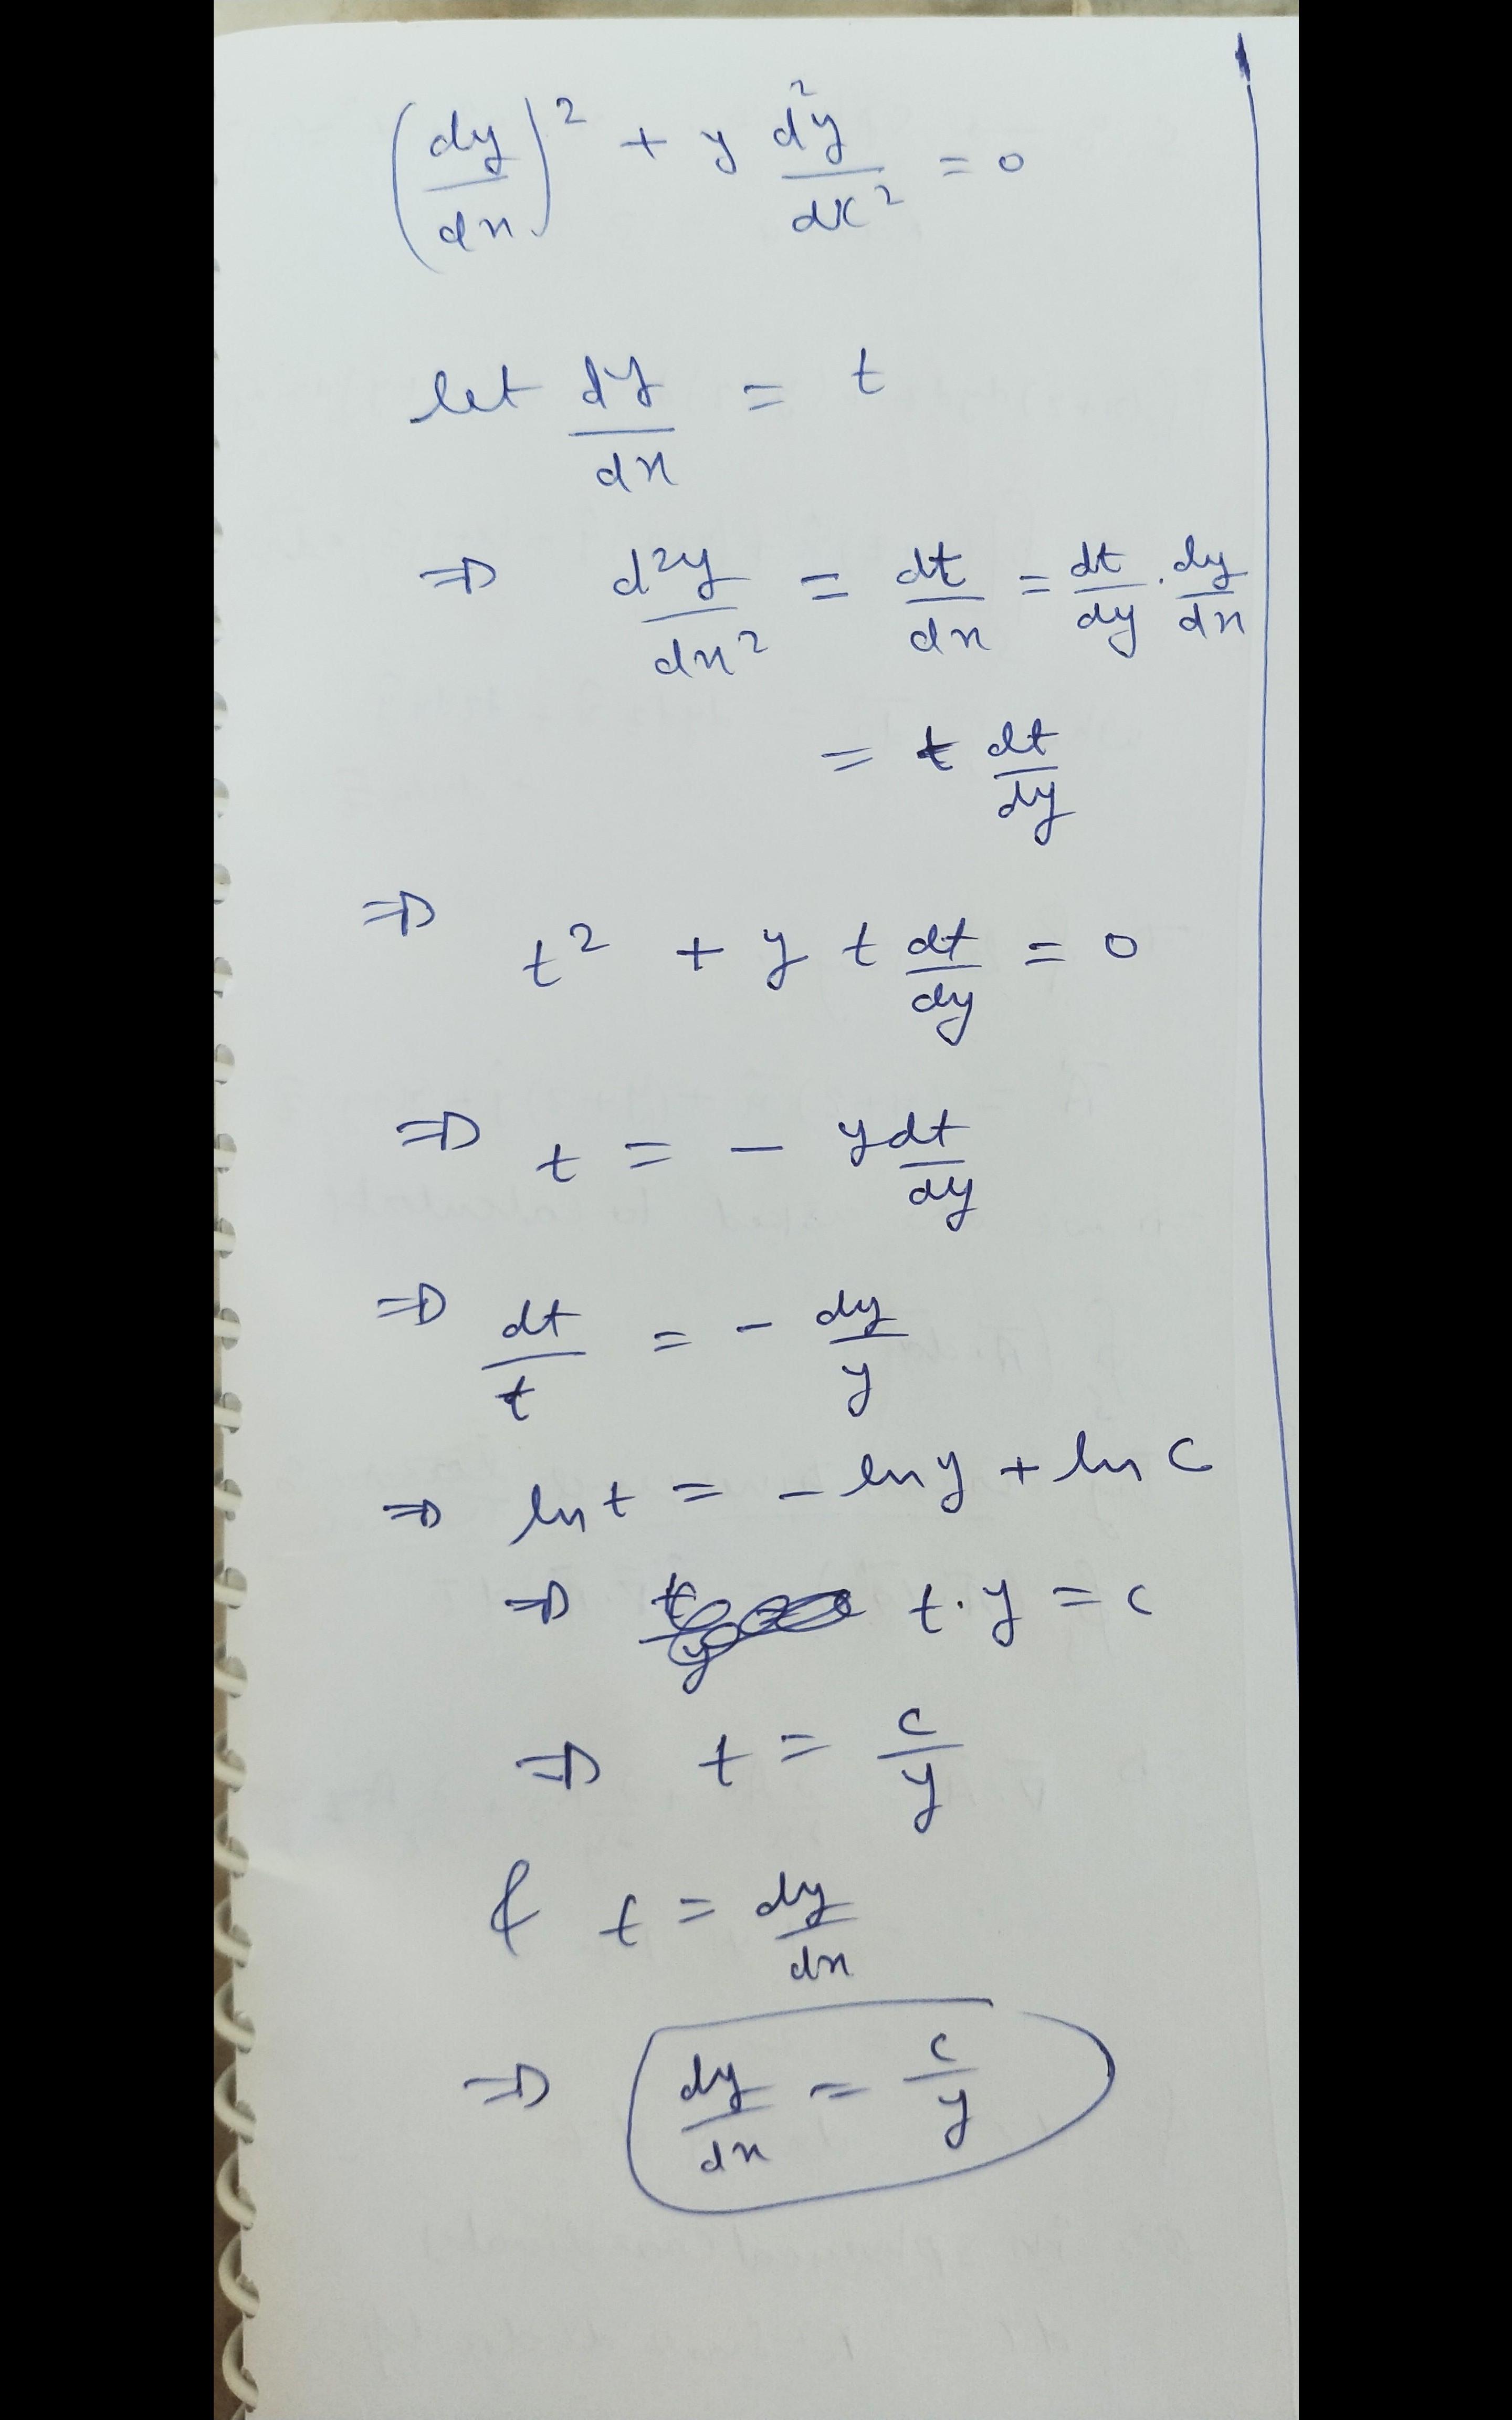 (dy/dx)² + y d²y/dx² = 0
let dy/dx = t
⇒ d²y/dx² = dt/dx = dt/dy · dy/dx
= t dt/dy
⇒ t² + y t dt/dy = 0
⇒ t = - y dt/dy
⇒ dt/t = - dy/y
⇒ ln t = - ln y + ln c
⇒ t · y = c
⇒ t = c/y
& t = dy/dx
⇒ dy/dx = c/y